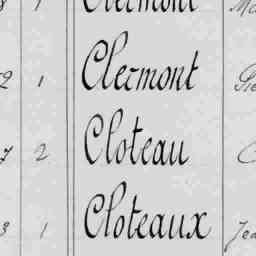 1 Clermont
2 1 Clermont
7 2 Cloteau
3 1 Cloteaux